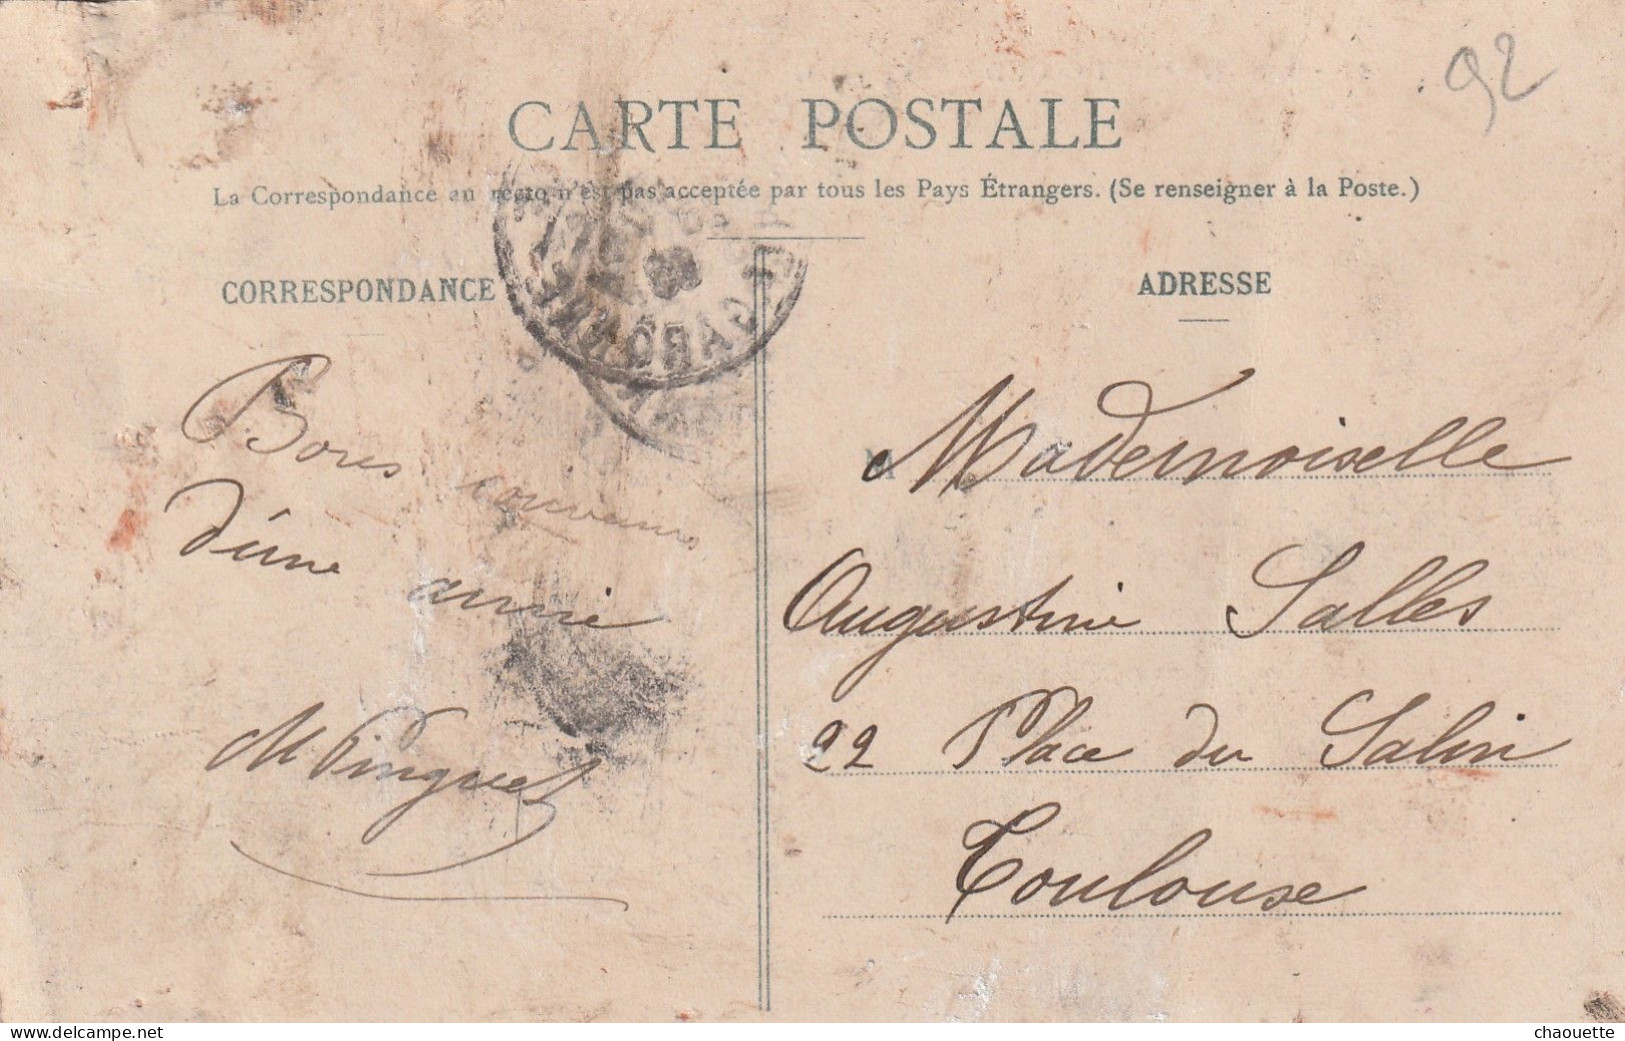 92
CARTE POSTALE
La Correspondance au recto n'est pas acceptée par tous les Pays Étrangers. (Se renseigner à la Poste.)
CORRESPONDANCE
Bons
d'une amie
M Pinguet
ADRESSE
Mademoiselle
Augustine Salles
22 Place du Salin
Toulouse
www.delcampe.net
chaouette